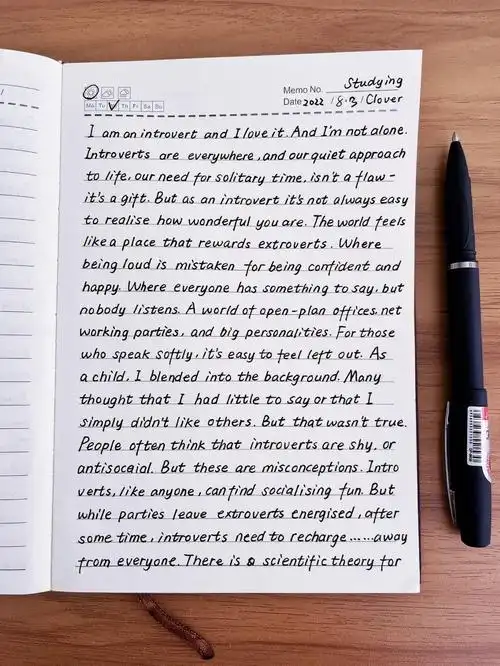 Memo No. Studying
Mo Tu Th Fr Sa Su
Date 2022 / 8.3 / Clover
I am an introvert and I love it. And I'm not alone.
Introverts are everywhere, and our quiet approach
to life, our need for solitary time, isn't a flaw-
it's a gift. But as an introvert it's not always easy
to realise how wonderful you are. The world feels
like a place that rewards extroverts. Where
being loud is mistaken for being confident and
happy. Where everyone has something to say, but
nobody listens. A world of open-plan offices, net
working parties, and big personalities. For those
who speak softly, it's easy to feel left out. As
a child, I blended into the background. Many
thought that I had little to say or that I
simply didn't like others. But that wasn't true.
People often think that introverts are shy, or
antisocaial. But these are misconceptions. Intro
verts, like anyone, can find socialising fun. But
while parties leave extroverts energised, after
some time, introverts need to recharge......away
from everyone. There is a scientific theory for